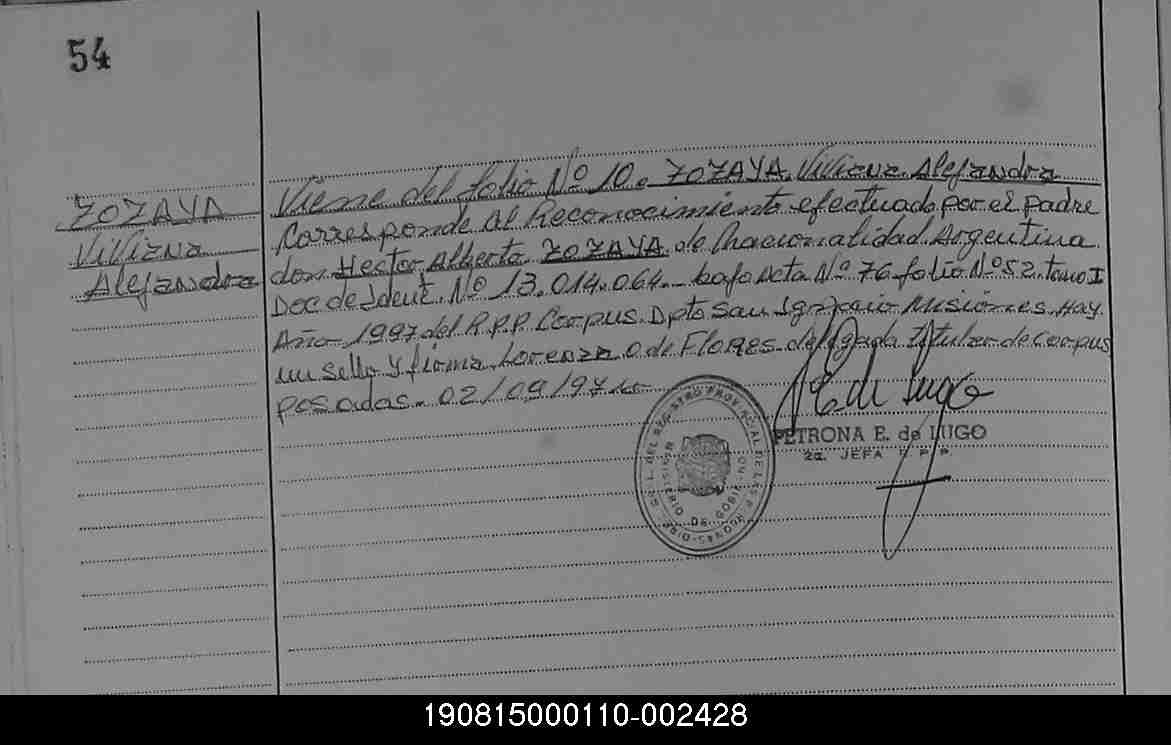 54
ZOZAYA
Viviana
Alejandra
Viene del folio Nº 10. ZOZAYA, Viviana Alejandra
Corresponde al Reconocimiento efectuado por el padre
don Hector Alberto ZOZAYA de Nacionalidad Argentina
Doc de Ident. Nº 13.014.064 - bajo Acta Nº 76 folio Nº 52 tomo I
Año 1997 del R.P.P. Corpus. Dpto San Ignacio Misiones. Hay
un sello y firma Lorenza O de FLORES delegada titular de Corpus
posadas - 02/09/97
PETRONA E. de LUGO
2a. JEFA R. P. P.
DEL REGISTRO PROVINCIAL DE LAS PERSONAS
MINISTERIO DE GOBIERNO
190815000110-002428